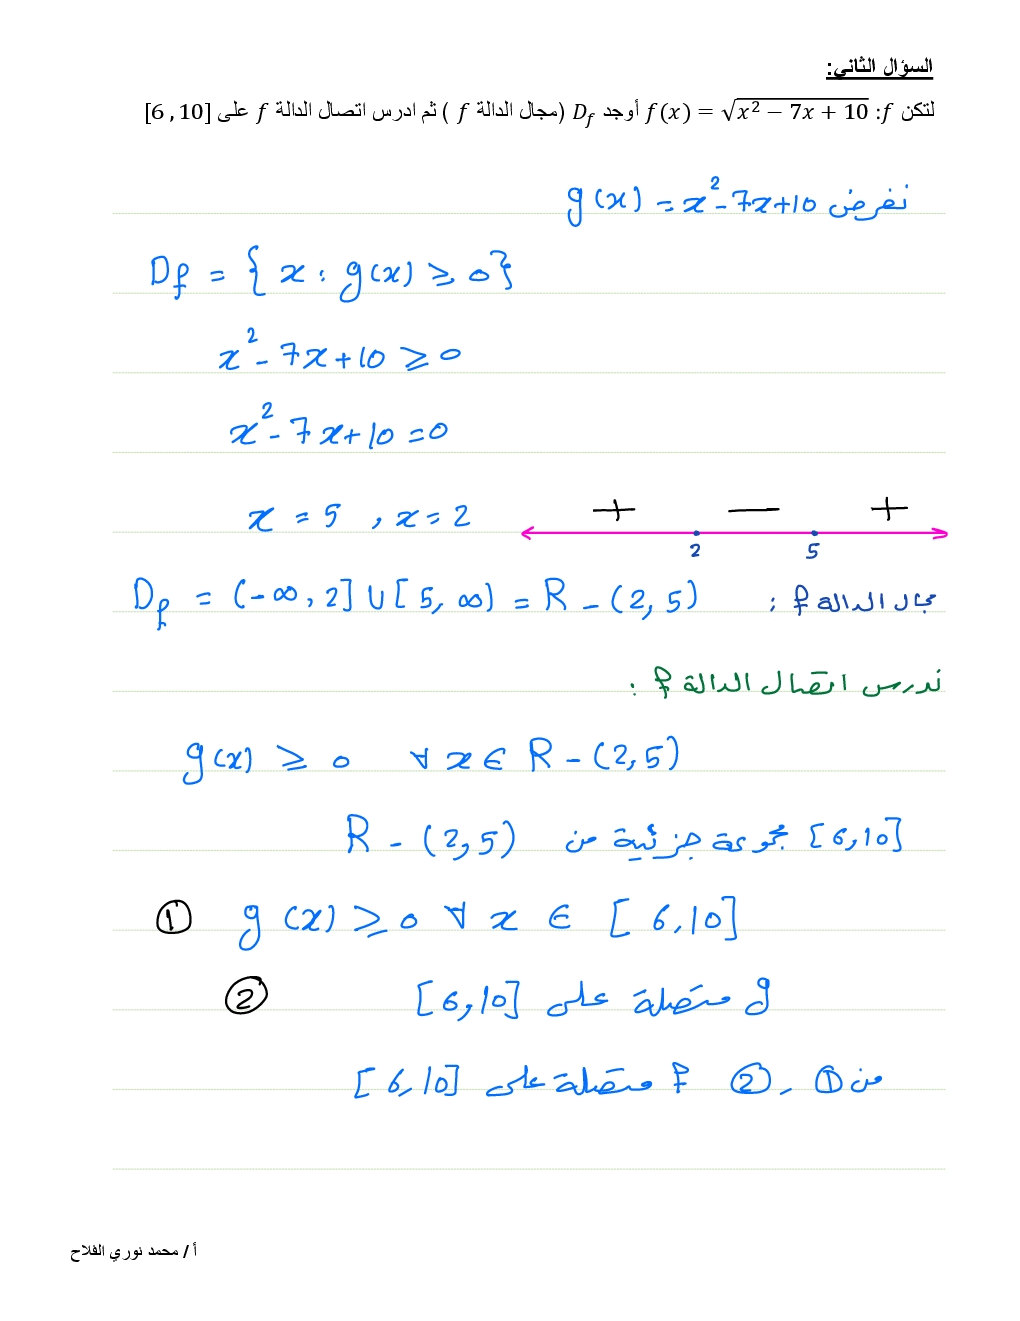 السؤال الثاني:
لتكن f: f(x) = √(x² − 7x + 10) أوجد D_f (مجال الدالة f ) ثم ادرس اتصال الدالة f على [6 , 10]
نفرض g(x) = x² - 7x + 10
D_f = { x : g(x) ≥ 0 }
x² - 7x + 10 ≥ 0
x² - 7x + 10 = 0
x = 5 , x = 2
+ − +
2 5
مجال الدالة f : D_f = (-∞, 2] ∪ [5, ∞) = R - (2, 5)
ندرس اتصال الدالة f :
g(x) ≥ 0 ∀ x ∈ R - (2, 5)
[6, 10] مجموعة جزئية من R - (2, 5)
① g(x) ≥ 0 ∀ x ∈ [6, 10]
g متصلة على [6, 10] ②
من ① , ② f متصلة على [6, 10]
أ / محمد نوري الفلاح